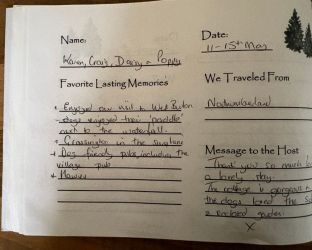 Name:
Karen, Craig, Daisy + Poppy
Date:
11-15th May
Favorite Lasting Memories
We Traveled From
Northumberland
* Enjoyed our visit to West Burton
- dogs enjoyed their 'paddle'
next to the waterfall.
* in the
* Dog friendly pubs including the
village pub
*
Message to the Host
Thank you so much
a lovely stay.
The cottage is gorgeous
the dogs loved the
enclosed garden.
X